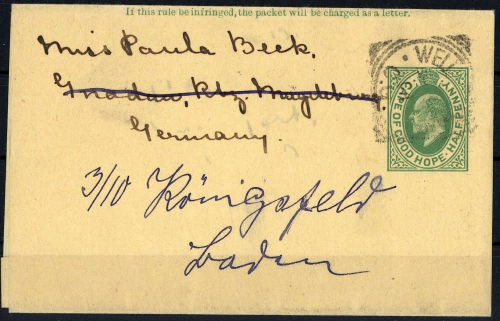 If this rule be infringed, the packet will be charged as a letter.
Miss Paula Beck,
Gnadau, Bz Magdeburg.
Germany.
3/10 Königsfeld
Baden
CAPE OF GOOD HOPE · HALFPENNY
WEL